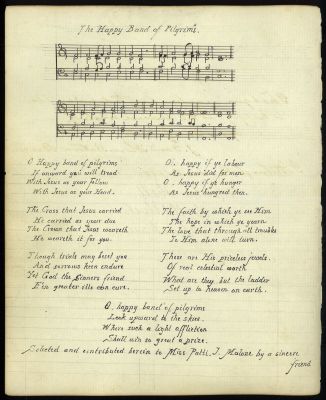 The Happy Band of Pilgrims.
O Happy band of pilgrims
If onward you will tread
With Jesus as your fellow
With Jesus as your Head.
The Cross that Jesus carried
He carried as your due
The Crown that Jesus weareth
He weareth it for you.
Though trials may beset you
And sorrows keen endure
Yet God the sinners friend
E'en greater ills can cure.
O, happy if ye labour
As Jesus did for men
O, happy if ye hunger
As Jesus hungred then.
The faith by which ye see Him
The hope in which ye yearn
The love that through all troubles
To Him alone will turn.
These are His priceless jewels
Of real celestial worth
What are they but the ladder
Set up to heaven on earth.
O, happy band of pilgrims
Look upward to the skies.
Where such a light affliction
Shall win so great a prize.
Selected and contributed herein to Miss Patti. J. Malone by a sincere
friend